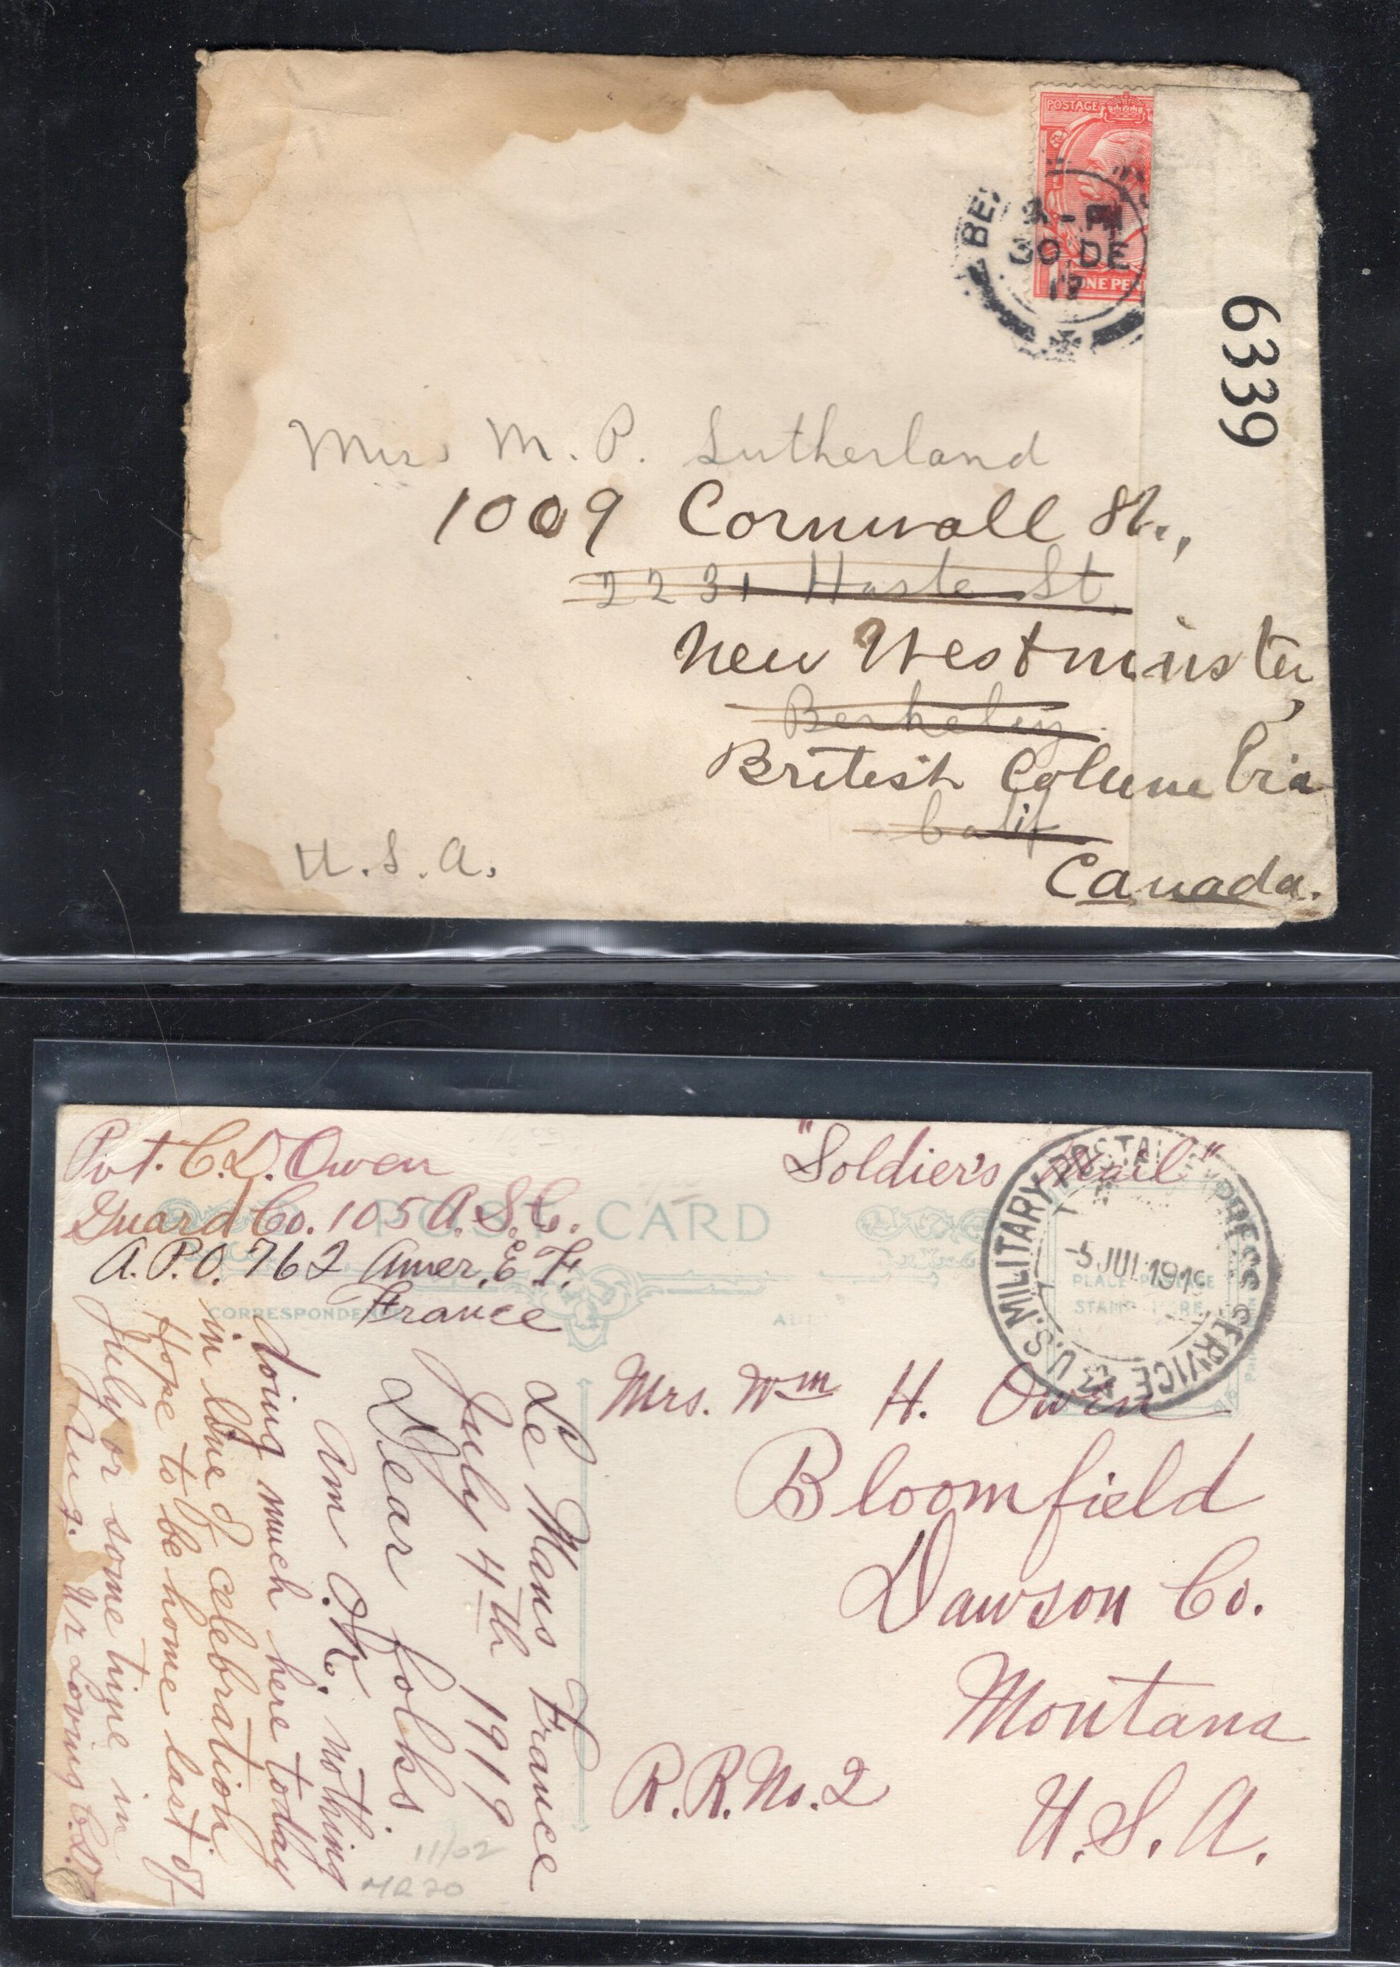 POSTAGE
BE
- PM
30 DE
17
ONE PEN
6339
Mrs. M. P. Sutherland
1009 Cornwall St.,
2231 Haste St.
New Westminster,
Berkeley
British Columbia
Calif
U.S.A.
Canada.
Pvt. C.D. Owen
Guard Co. 105 A.S.C.
A.P.O. 762 Amer. E. F.
France
"Soldier's Mail"
POST CARD
CORRESPONDEN
U.S. MILITARY POSTAL EXPRESS SERVICE
-5 JUL 1919
PLACE POSTAGE
STAMP HERE
Le Mans France
July 4th 1919
Dear folks.
Am O.K. nothing
doing much here today
in line of celebration
Hope to be home last of
July or some time in
Aug. Ur Loving C.D.
Mrs. Wm H. Owen
Bloomfield
Dawson Co.
Montana
R.R. No. 2
U.S.A.
11/02